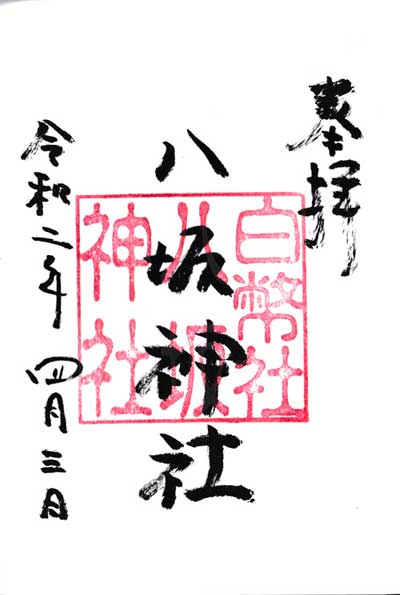 奉拝
八坂神社
白幣社
八坂
神社
令和二年 四月三日